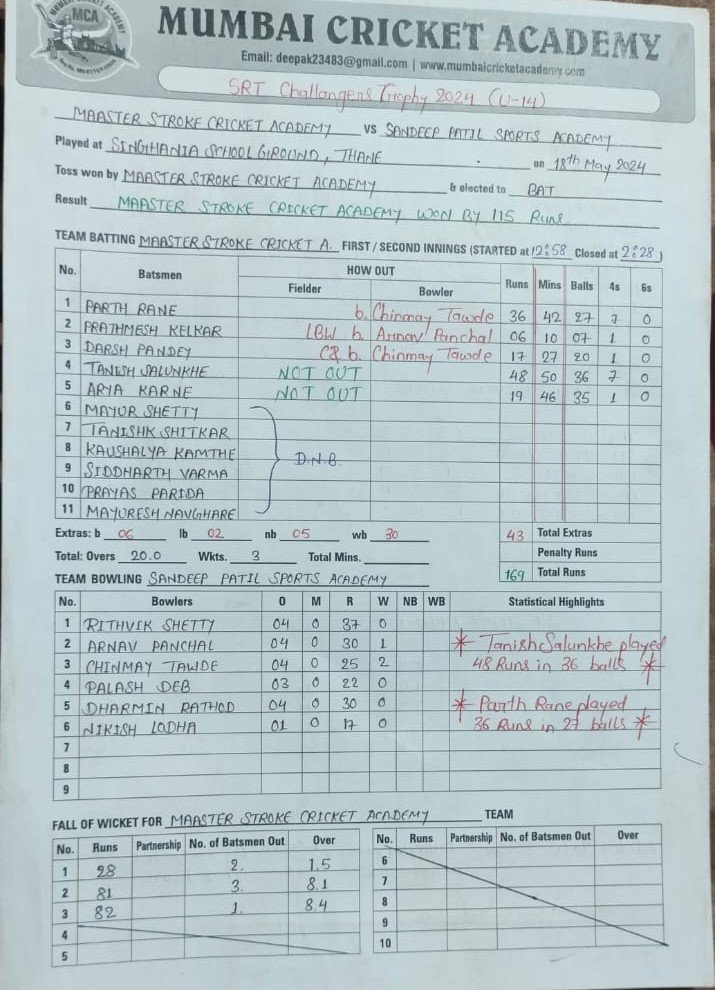 MUMBAI CRICKET ACADEMY
MCA
Email: deepak23483@gmail.com | www.mumbaicricketacademy.com
SRT Challangers Trophy 2024 (U-14)
MAASTER STROKE CRICKET ACADEMY VS SANDEEP PATIL SPORTS ACADEMY
Played at SINGHANIA SCHOOL GROUND, THANE on 18th May 2024
Toss won by MAASTER STROKE CRICKET ACADEMY & elected to BAT
Result MAASTER STROKE CRICKET ACADEMY WON BY 115 Runs.
TEAM BATTING MAASTER STROKE CRICKET A. FIRST / SECOND INNINGS (STARTED at 12:58 Closed at 2:28)
No. Batsmen HOW OUT Runs Mins Balls 4s 6s
Fielder Bowler
1 PARTH RANE b. Chinmay Tawde 36 42 27 7 0
2 PRATHMESH KELKAR LBW b. Arnav Panchal 06 10 07 1 0
3 DARSH PANDEY C& b. Chinmay Tawde 17 27 20 1 0
4 TANISH SALUNKHE NOT OUT 48 50 36 7 0
5 ARYA KARNE NOT OUT 19 46 35 1 0
6 MAYUR SHETTY
7 TANISHK SHITKAR
8 KAUSHALYA KAMTHE D.N.B.
9 SIDDHARTH VARMA
10 PRAYAS PARIDA
11 MAYURESH NAVGHARE
Extras: b 06 lb 02 nb 05 wb 30 43 Total Extras
Penalty Runs
Total: Overs 20.0 Wkts. 3 Total Mins. 169 Total Runs
TEAM BOWLING SANDEEP PATIL SPORTS ACADEMY
No. Bowlers O M R W NB WB Statistical Highlights
1 RITHVIK SHETTY 04 0 37 0
2 ARNAV PANCHAL 04 0 30 1 * Tanish Salunkhe played
3 CHINMAY TAWDE 04 0 25 2 48 Runs in 36 balls *
4 PALASH DEB 03 0 22 0
5 DHARMIN RATHOD 04 0 30 0 * Parth Rane played
6 NIKISH LODHA 01 0 17 0 36 Runs in 27 balls *
7
8
9
FALL OF WICKET FOR MAASTER STROKE CRICKET ACADEMY TEAM
No. Runs Partnership No. of Batsmen Out Over No. Runs Partnership No. of Batsmen Out Over
1 28 2. 1.5 6
2 81 3. 8.1 7
3 82 1. 8.4 8
4 9
5 10